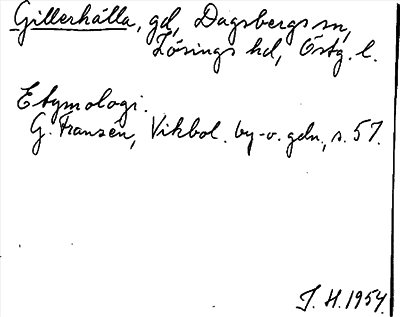 Gillerhälla, gd, Dagsbergs sn,
Lösings hd, Östg. l.
Etymologi.
G. Franzén, Vikbol. by- o. gdn., s. 57.
J. H. 1954.